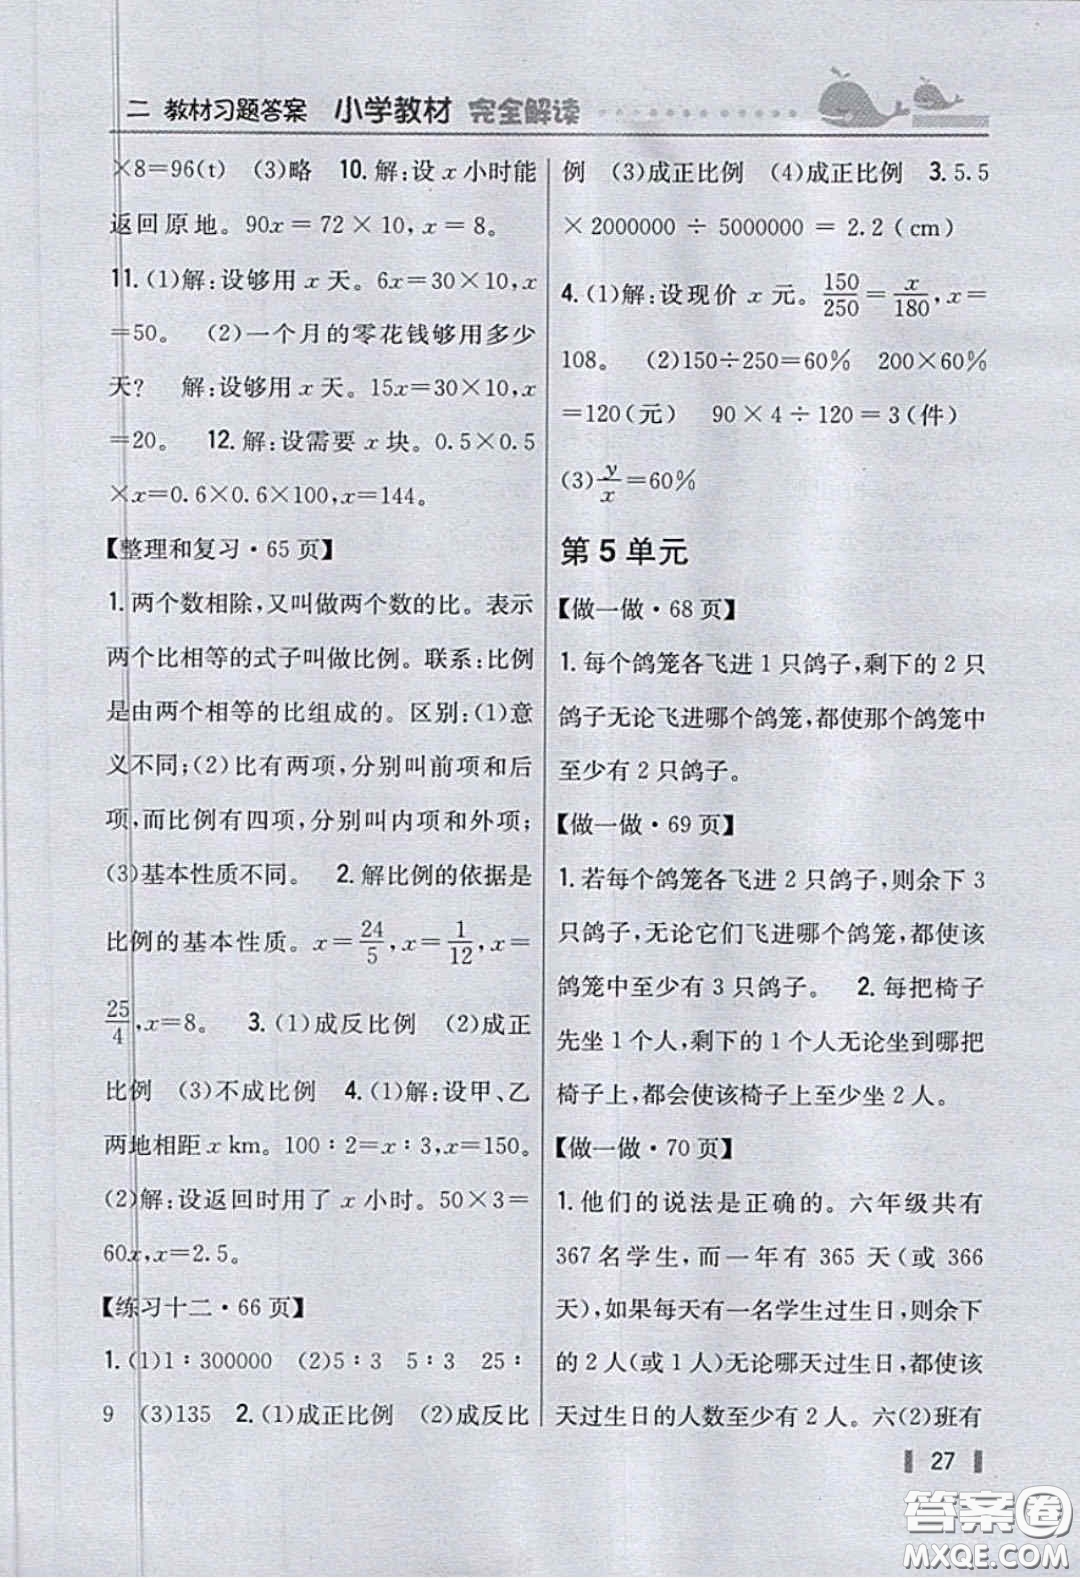 二 教材习题答案 小学教材 完全解读
×8=96(t) (3)略 10.解:设 x 小时能
返回原地。90x=72×10,x=8。
11.(1)解:设够用 x 天。6x=30×10,x
=50。 (2)一个月的零花钱够用多少
天? 解:设够用 x 天。15x=30×10,x
=20。 12.解:设需要 x 块。0.5×0.5
×x=0.6×0.6×100,x=144。
【整理和复习·65页】
1.两个数相除,又叫做两个数的比。表示
两个比相等的式子叫做比例。联系:比例
是由两个相等的比组成的。区别:(1)意
义不同;(2)比有两项,分别叫前项和后
项,而比例有四项,分别叫内项和外项;
(3)基本性质不同。 2.解比例的依据是
比例的基本性质。x=24/5,x=1/12,x=
25/4,x=8。 3.(1)成反比例 (2)成正
比例 (3)不成比例 4.(1)解:设甲、乙
两地相距 x km。100∶2=x∶3,x=150。
(2)解:设返回时用了 x 小时。50×3=
60x,x=2.5。
【练习十二·66页】
1.(1)1∶300000 (2)5∶3 5∶3 25∶
9 (3)135 2.(1)成正比例 (2)成反比
例 (3)成正比例 (4)成正比例 3.5.5
×2000000÷5000000=2.2(cm)
4.(1)解:设现价 x 元。150/250=x/180,x=
108。 (2)150÷250=60% 200×60%
=120(元) 90×4÷120=3(件)
(3)y/x=60%
第5单元
【做一做·68页】
1.每个鸽笼各飞进1只鸽子,剩下的2只
鸽子无论飞进哪个鸽笼,都使那个鸽笼中
至少有2只鸽子。
【做一做·69页】
1.若每个鸽笼各飞进2只鸽子,则余下3
只鸽子,无论它们飞进哪个鸽笼,都使该
鸽笼中至少有3只鸽子。 2.每把椅子
先坐1个人,剩下的1个人无论坐到哪把
椅子上,都会使该椅子上至少坐2人。
【做一做·70页】
1.他们的说法是正确的。六年级共有
367名学生,而一年有365天(或366
天),如果每天有一名学生过生日,则余下
的2人(或1人)无论哪天过生日,都使该
天过生日的人数至少有2人。六(2)班有
27
答案圈
MXQE.COM